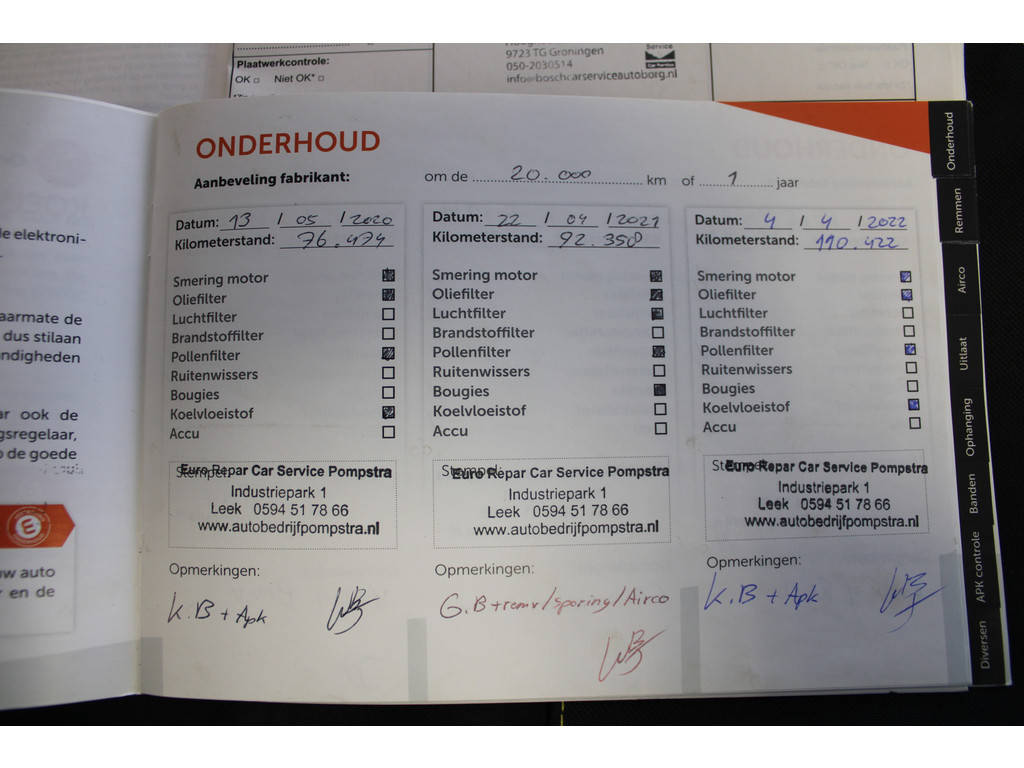 Plaatwerkcontrole:
OK Niet OK*
9723 TG Groningen
050-2030514
info@boschcarserviceautoborg.nl
Service
ONDERHOUD
Aanbeveling fabrikant: om de 20.000 km of 1 jaar
Datum: 13 / 05 / 2020
Kilometerstand: 76.474
Smering motor
Oliefilter
Luchtfilter
Brandstoffilter
Pollenfilter
Ruitenwissers
Bougies
Koelvloeistof
Accu
Stempel:
Euro Repar Car Service Pompstra
Industriepark 1
Leek 0594 51 78 66
www.autobedrijfpompstra.nl
Opmerkingen:
K.B + Apk
Datum: 22 / 04 / 2021
Kilometerstand: 92.350
Smering motor
Oliefilter
Luchtfilter
Brandstoffilter
Pollenfilter
Ruitenwissers
Bougies
Koelvloeistof
Accu
Stempel:
Euro Repar Car Service Pompstra
Industriepark 1
Leek 0594 51 78 66
www.autobedrijfpompstra.nl
Opmerkingen:
G.B + remv/sporing/Airco
Datum: 4 / 4 / 2022
Kilometerstand: 110.422
Smering motor
Oliefilter
Luchtfilter
Brandstoffilter
Pollenfilter
Ruitenwissers
Bougies
Koelvloeistof
Accu
Stempel:
Euro Repar Car Service Pompstra
Industriepark 1
Leek 0594 51 78 66
www.autobedrijfpompstra.nl
Opmerkingen:
K.B + Apk
Onderhoud
Remmen
Airco
Uitlaat
Ophanging
Banden
APK controle
Diversen
le elektroni-
aarmate de
dus stilaan
ndigheden
ar ook de
gsregelaar,
de goede
uw auto
r en de